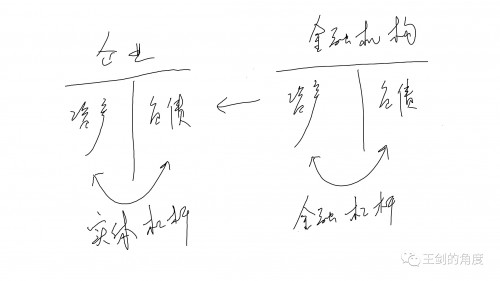 企业
资产 负债
实体杠杆
←
金融机构
资产 负债
金融杠杆
王剑的角度